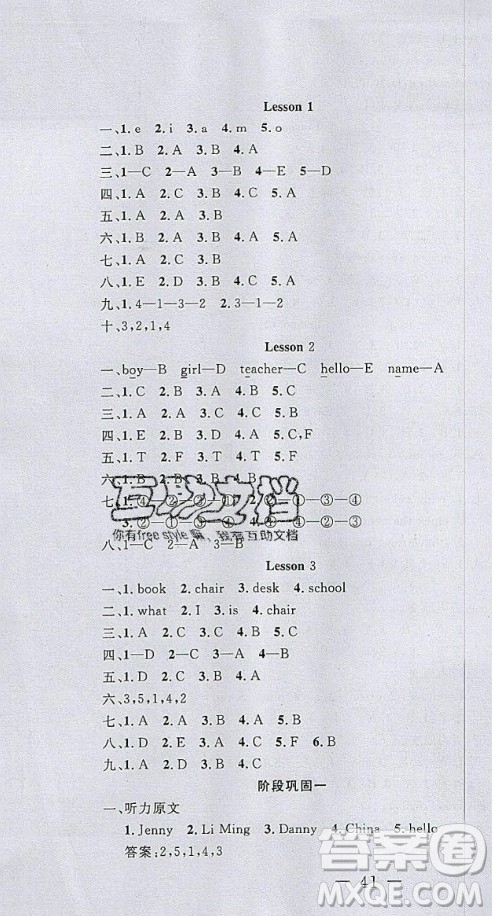 Lesson 1
一、1. e 2. i 3. a 4. m 5. o
二、1. B 2. A 3. B 4. A
三、1—C 2—A 3—B 4—E 5—D
四、1. A 2. C 3. B 4. A 5. C
五、1. A 2. C 3. B
六、1. B 2. A 3. C 4. A 5. A
七、1. A 2. C 3. A
八、1. E 2. D 3. A 4. C 5. B
九、1. 4—1—3—2 2. 3—1—4—2
十、3,2,1,4
Lesson 2
一、boy—B girl—D teacher—C hello—E name—A
二、1. C 2. B 3. C 4. B 5. A
三、1. B 2. A 3. B
四、1. E 2. A 3. D 4. B 5. C,F
五、1. F 2. T 3. F 4. T 5. T
六、B 4. B 5. A
七、1. ④—②—①—③ ①—③—④
3. ②
八、1—C 2—A 3—B
互助文档
你有free style嘛，我有互助文档
Lesson 3
一、1. book 2. chair 3. desk 4. school
二、1. what 2. I 3. is 4. chair
三、1. A 2. C 3. B 4. A 5. B
四、1—D 2—C 3—A 4—B
五、1. D 2. A 3. C 4. B 5. A
六、3,5,1,4,2
七、1. A 2. B 3. B 4. A 5. A
八、1. C 2. A 3. D 4. E 5. F 6. B
九、1. A 2. C 3. B
阶段巩固一
一、听力原文
1. Jenny 2. Li Ming 3. Danny 4. China 5. hello
答案:2,5,1,4,3
— 41 —
答案圈
MXQE.COM